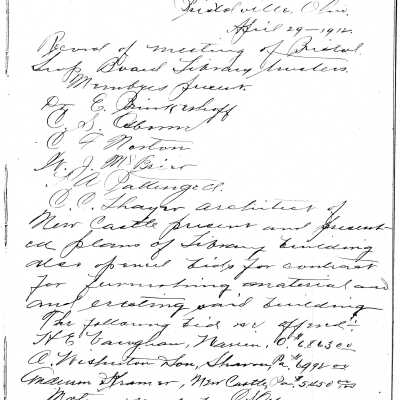 Bristolville, Ohio,
April 29-1912.
Record of meeting of Bristol
Twp Board Library Trustees
Members present
Dr E. Brinkerhoff
C. S. Osborne
C F Norton
W. J. McBrier
A Pattengell.
C. C. Thayer architect of
New Castle present and present-
ed plans of Library building
also opened bids for contract
for furnishing material and
and erecting said building
The following bid as offered:
H E Vaughan, Warren, O $6863.00
A. Wishart & Son, Sharon, Pa. $6992.00
Kramer, New Castle, Pa. $5450.00